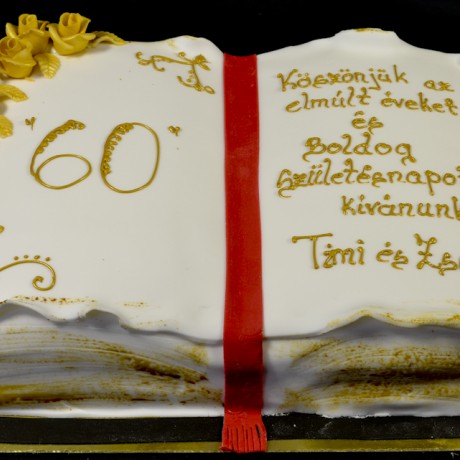 60
Köszönjük az
elmúlt éveket
és
Boldog
Születésnapot
kívánunk
Timi és